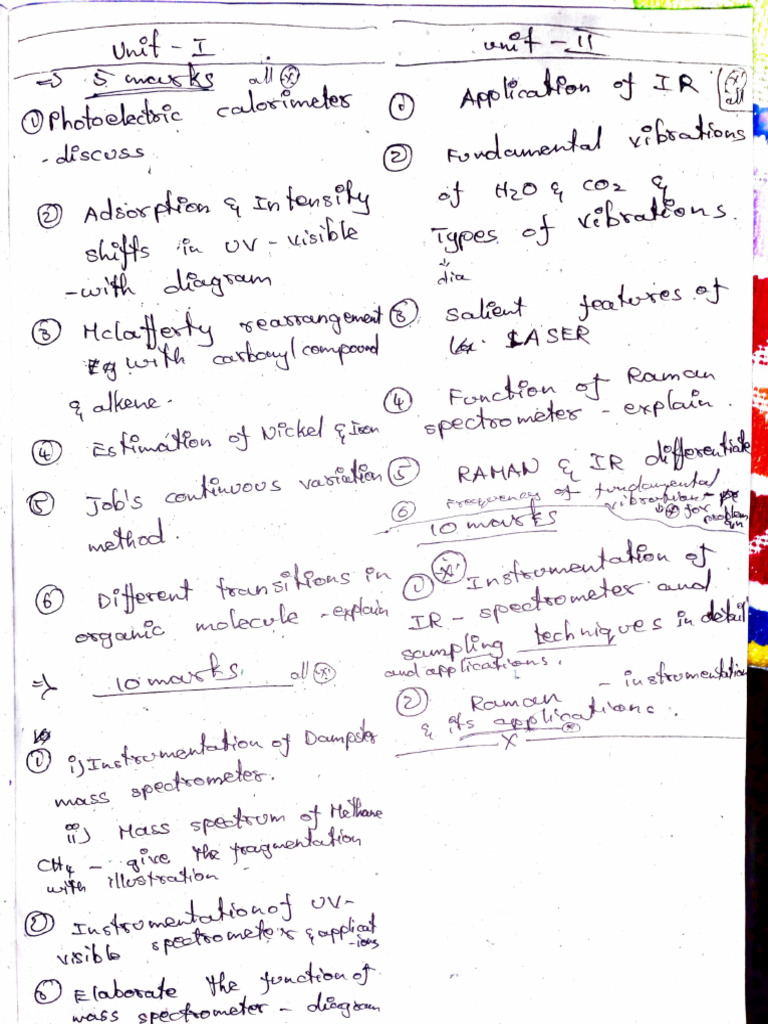 Unit - I
⇒ 5 marks all (*)
① Photoelectric calorimeter
- discuss
② Adsorption & Intensity
shifts in UV - visible
- with diagram
③ Mclafferty rearrangement
Eg with carbonyl compound
& alkene.
④ Estimation of Nickel & Iron
⑤ Job's continuous variation
method.
⑥ Different transitions in
organic molecule - explain
⇒ 10 marks. all (*)
① i) Instrumentation of Dampster
mass spectrometer.
ii) Mass spectrum of Methane
CH4 - give the fragmentation
with illustration -
② Instrumentation of UV-
visible spectrometer & applicat
-ions
③ Elaborate the function of
mass spectrometer - diagram
Unit - II
① Application of IR (*) all
② Fundamental vibrations
of H2O & CO2 &
Types of vibrations.
dia
③ Salient features of
LASER
④ Function of Raman
spectrometer - explain.
⑤ RAMAN & IR differentiate
⑥ Frequency of fundamental
vibration -
for problem
10 marks
① (*) Instrumentation of
IR - spectrometer and
sampling techniques in detail
and applications.
② Raman - instrumentation
& its applications.
x